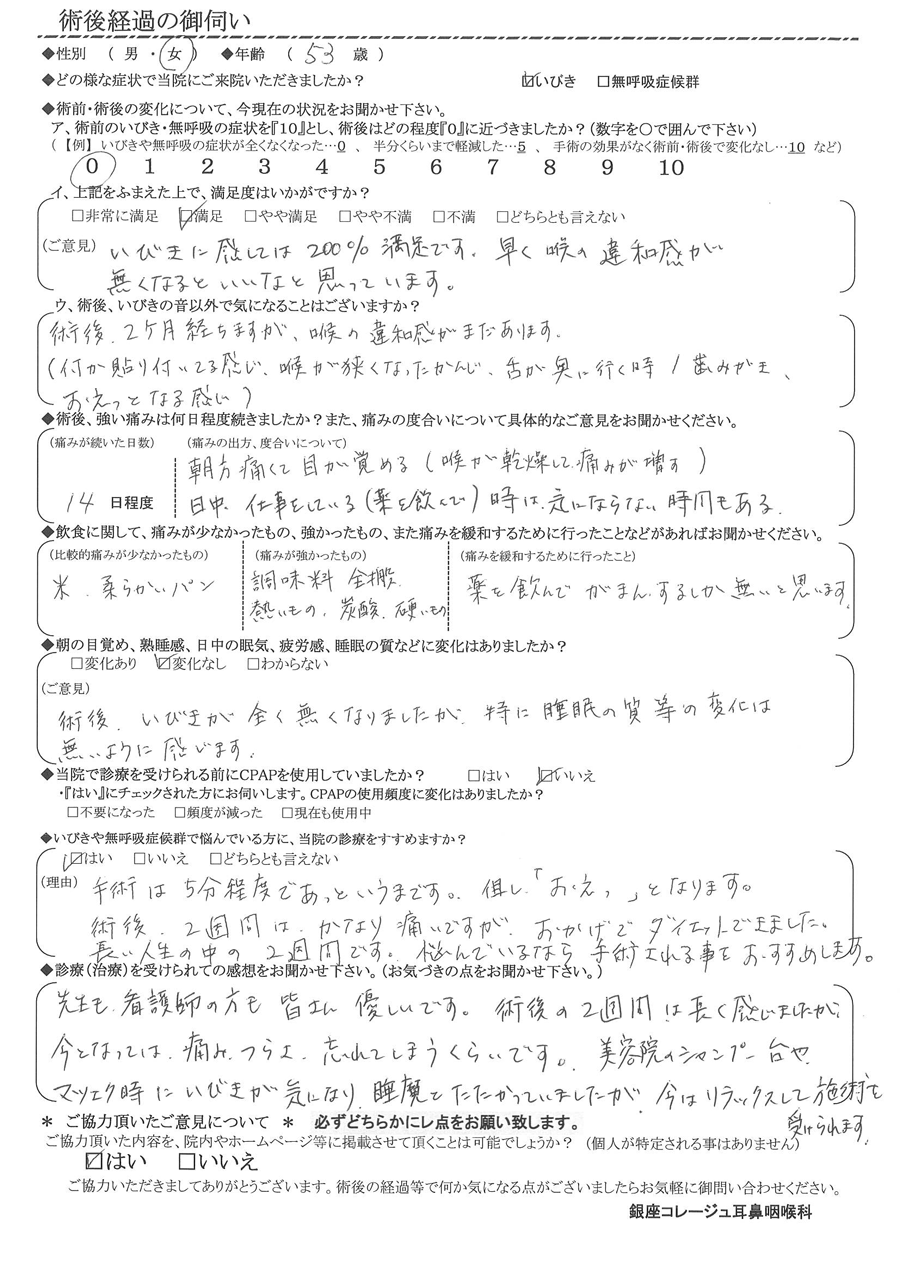 術後経過の御伺い
◆性別 ( 男 ・ 女 ) ◆年齢 ( 53 歳 )
◆どの様な症状で当院にご来院いただきましたか? ☑いびき □無呼吸症候群
◆術前・術後の変化について、今現在の状況をお聞かせ下さい。
ア、術前のいびき・無呼吸の症状を『10』とし、術後はどの程度『0』に近づきましたか?(数字を〇で囲んで下さい)
(【例】いびきや無呼吸の症状が全くなくなった…0 、 半分くらいまで軽減した…5 、 手術の効果がなく術前・術後で変化なし…10 など)
0 1 2 3 4 5 6 7 8 9 10
イ、上記をふまえた上で、満足度はいかがですか?
□非常に満足 ☑満足 □やや満足 □やや不満 □不満 □どちらとも言えない
(ご意見) いびきに感しては200%満足です。早く喉の違和感が
無くなるといいなと思っています。
ウ、術後、いびきの音以外で気になることはございますか?
術後、2ケ月経ちますが、喉の違和感がまだあります。
(付か貼り付いてる感じ、喉が狭くなったかんじ、舌が奥に行く時/歯みがき、
おえっとなる感じ)
◆術後、強い痛みは何日程度続きましたか?また、痛みの度合いについて具体的なご意見をお聞かせください。
(痛みが続いた日数) (痛みの出方、度合いについて)
朝方痛くて目が覚める(喉が乾燥して痛みが増す)
14 日程度 日中、仕事をしている(薬を飲んで)時は、気にならない時間もある。
◆飲食に関して、痛みが少なかったもの、強かったもの、また痛みを緩和するために行ったことなどがあればお聞かせください。
(比較的痛みが少なかったもの) (痛みが強かったもの) (痛みを緩和するために行ったこと)
米、柔らかいパン 調味料全搬、 薬を飲んでがまんするしか無いと思います。
熱いもの、炭酸、硬いもの
◆朝の目覚め、熟睡感、日中の眠気、疲労感、睡眠の質などに変化はありましたか?
□変化あり ☑変化なし □わからない
(ご意見)
術後、いびきが全く無くなりましたが、特に睡眠の質等の変化は
無いように感じます。
◆当院で診療を受けられる前にCPAPを使用していましたか? □はい ☑いいえ
・『はい』にチェックされた方にお伺いします。CPAPの使用頻度に変化はありましたか?
□不要になった □頻度が減った □現在も使用中
◆いびきや無呼吸症候群で悩んでいる方に、当院の診療をすすめますか?
☑はい □いいえ □どちらとも言えない
(理由) 手術は5分程度であっというまです。但し「おえっ」となります。
術後、2週間は、かなり痛いですが、おかげでダイエットできました。
長い人生の中の2週間です。悩んでいるなら手術される事をおすすめします。
◆診療(治療)を受けられての感想をお聞かせ下さい。(お気づきの点をお聞かせ下さい。)
先生も、看護師の方も皆さん優しいです。術後の2週間は長く感じましたが、
今となっては、痛み、つらさ、忘れてしまうくらいです。美容院のシャンプー台や、
マツエク時にいびきが気になり、睡魔とたたかっていましたが、今はリラックスして施術を
受けられます。
* ご協力頂いたご意見について * 必ずどちらかにレ点をお願い致します。
ご協力頂いた内容を、院内やホームページ等に掲載させて頂くことは可能でしょうか? (個人が特定される事はありません)
☑はい □いいえ
ご協力いただきましてありがとうございます。術後の経過等で何か気になる点がございましたらお気軽に御問い合わせください。
銀座コレージュ耳鼻咽喉科